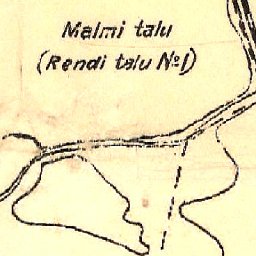 Malmi talu
(Rendi talu №1)